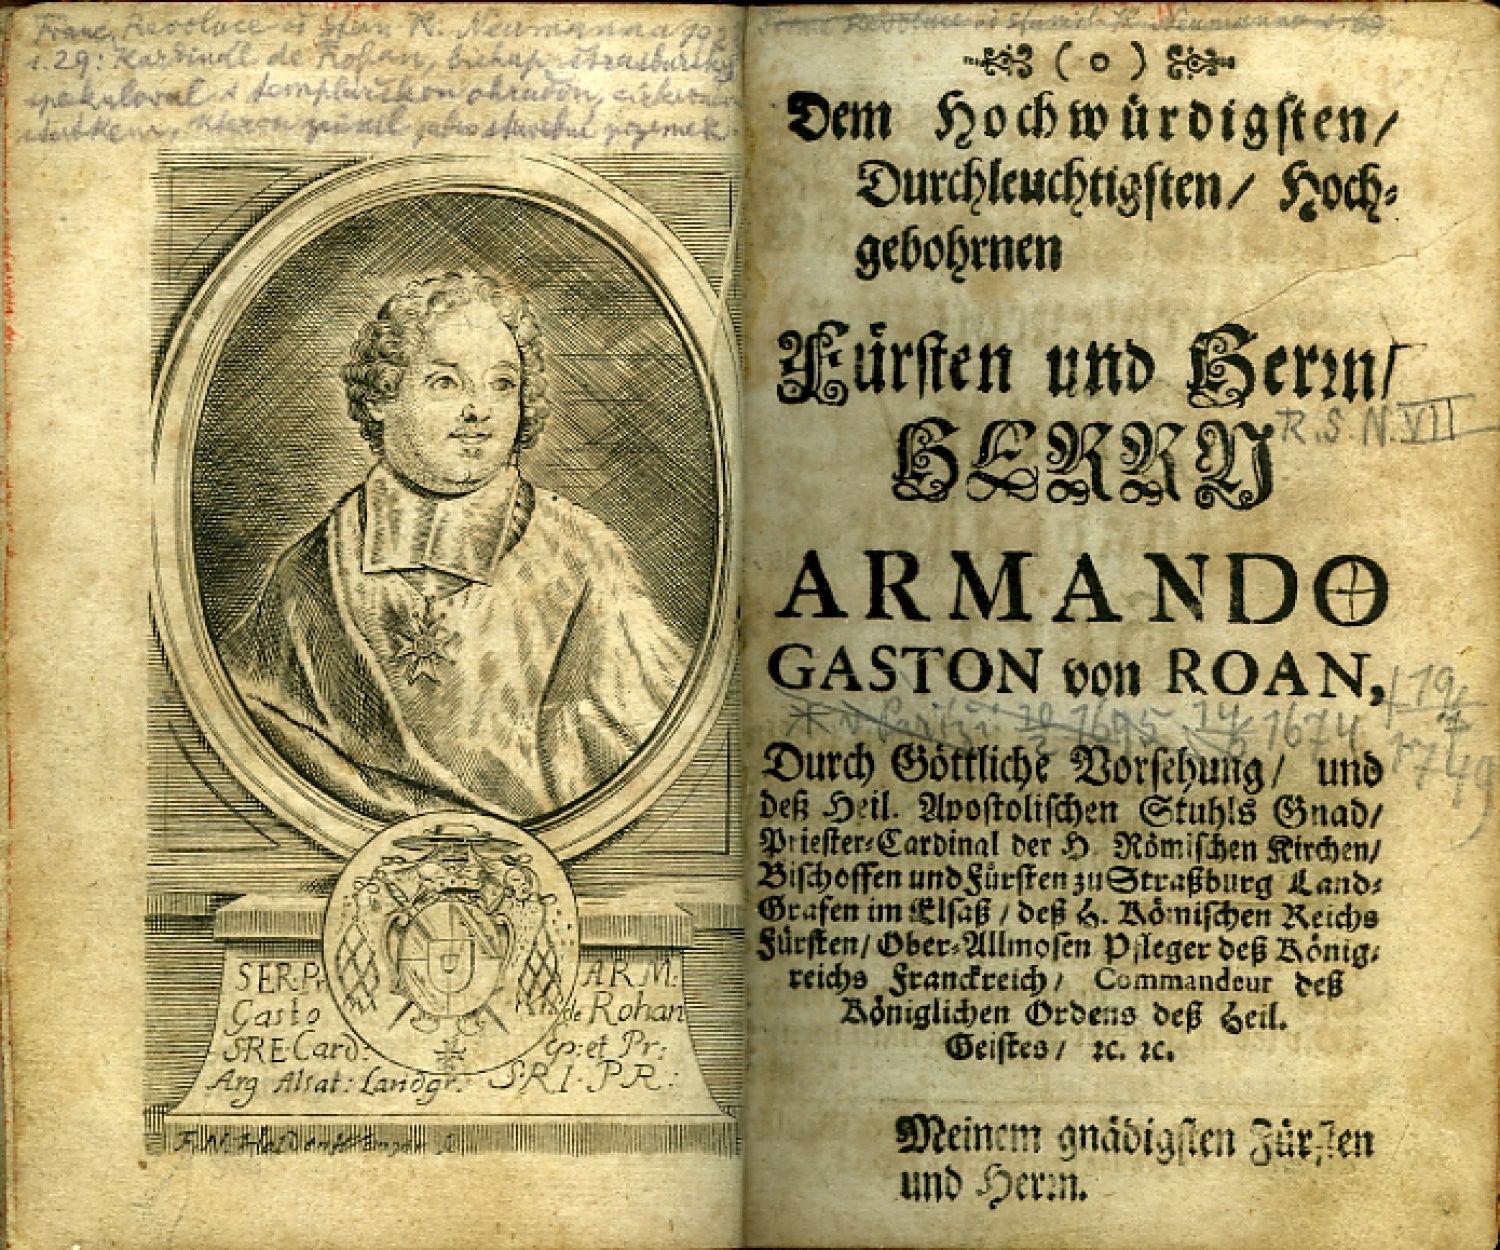 Franc. Revoluce od Stan. K. Neumanna
Kardinál de Rohan, biskup štrasburský
spekuloval s templářskou
statkem,
SER. Pr. ARM:
Gasto de Rohan
SRE Card: Ep: et Pr:
Arg Alsat: Landgr: S.R.I. PR:
( o )
Dem Hochwürdigsten/
Durchleuchtigsten/ Hoch-
gebohrnen
Fürsten und Herrn/
HERRN
R.S.N.VII
ARMANDO
GASTON von ROAN,
1674
1749
Durch Göttliche Vorsehung/ und
deß Heil. Apostolischen Stuhls Gnad/
Priester-Cardinal der H. Römischen Kirchen/
Bischoffen und Fürsten zu Straßburg Land-
Grafen im Elsaß/ deß H. Römischen Reichs
Fürsten/ Ober-Allmosen Pfleger deß König-
reichs Franckreich/ Commandeur deß
Königlichen Ordens deß Heil.
Geistes/ ꝛc. ꝛc.
Meinem gnädigsten Fürsten
und Herrn.